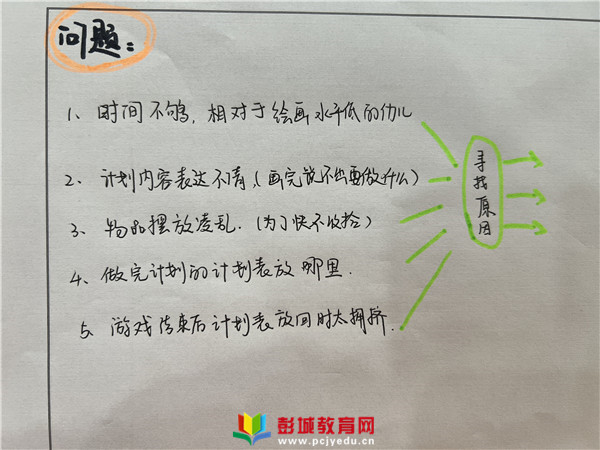 问题：
1、时间不够，相对于绘画水平低的幼儿
2、计划内容表达不清（画完说不出要做什么）
3、物品摆放凌乱．（为了快不收拾）
4、做完计划的计划表放哪里．
5、游戏结束后计划表放回时太拥挤．
寻找原因
彭城教育网
www.pcjyedu.cn